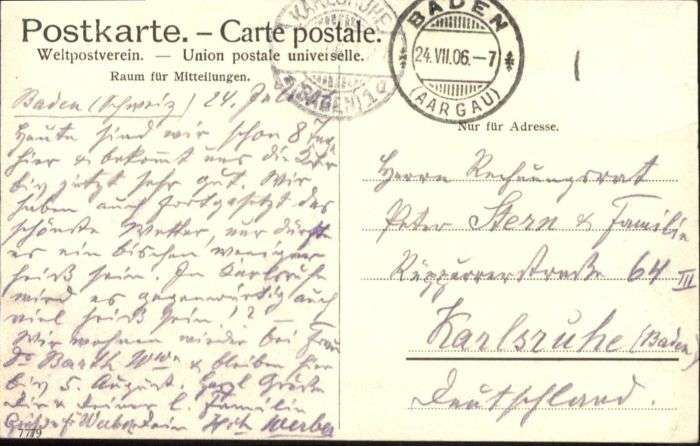 Postkarte. – Carte postale.
Weltpostverein. – Union postale universelle.
Raum für Mitteilungen.
Nur für Adresse.
KARLSRUHE
(BADEN) 1
BADEN
24.VII.06.–7
(AARGAU)
Baden (Schweiz) 24. Juli
Heute sind wir schon 8 Tage
hier & bekommt uns die Kur
bis jetzt sehr gut. Wir
haben auch fortgesetzt das
schönste Wetter, nur dürfte
es ein bischen weniger
heiß sein. In Karlsruhe
wird es gegenwärtig auch
viel heiß sein!? –
Wir wohnen wieder bei Frau
Dr Barth Wwe & bleiben hier
bis 5. August. Herzl. Grüße
Dir & Deiner l. Familie
Dein
Herrn Rechnungsrat
Peter Stern & Familie
Rüppurrerstraße 64 III
Karlsruhe (Baden)
Deutschland.
7749